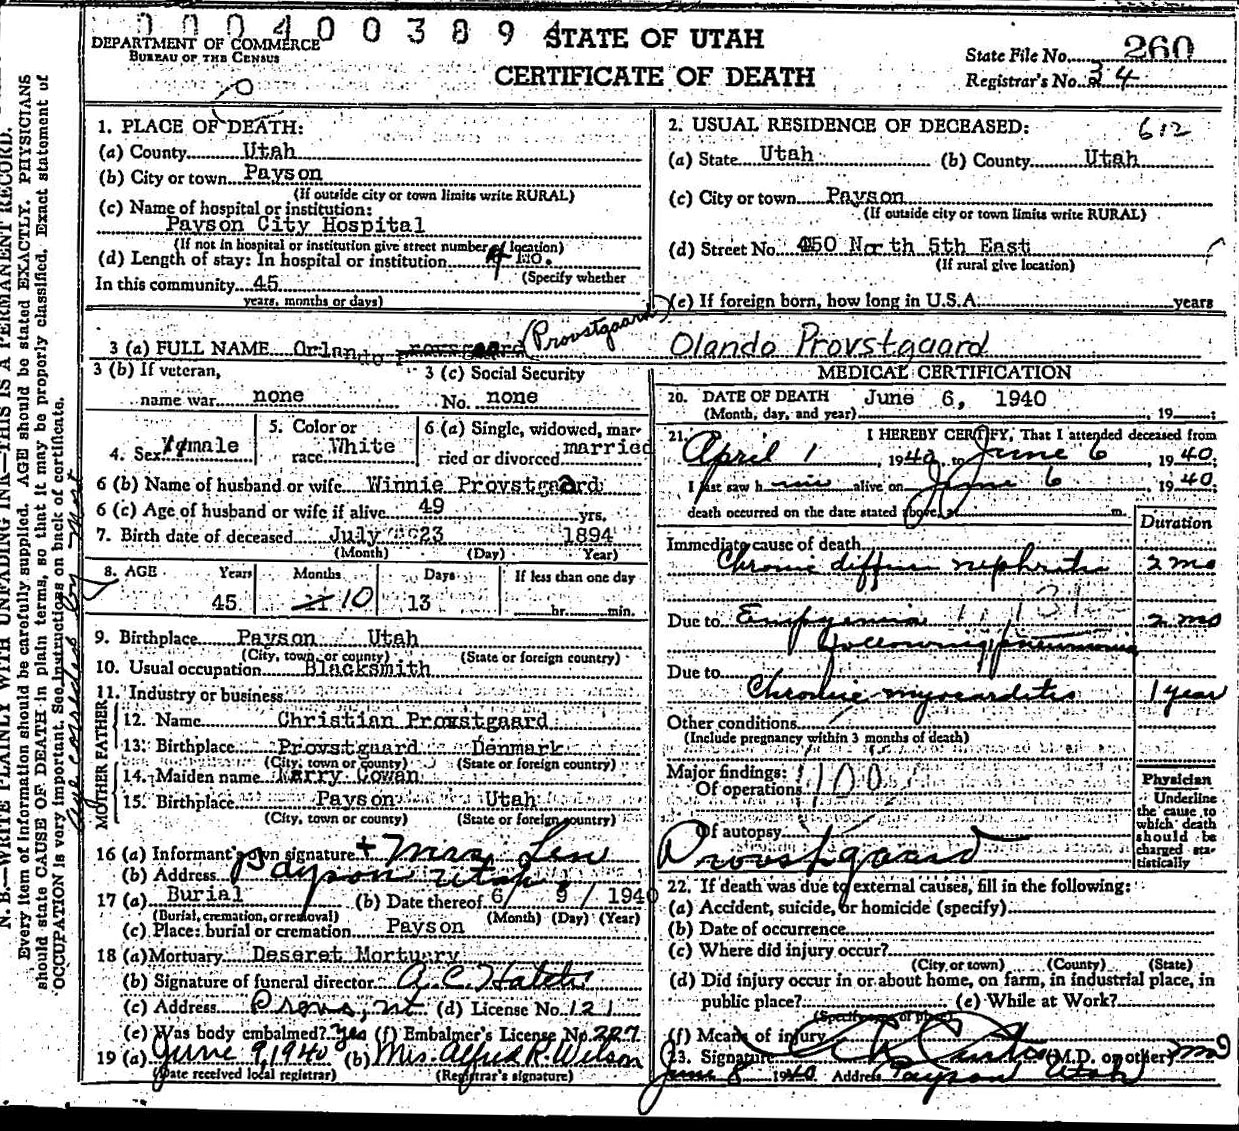 000400389 4
DEPARTMENT OF COMMERCE
BUREAU OF THE CENSUS
STATE OF UTAH
CERTIFICATE OF DEATH
State File No. 260
Registrar's No. 34
N. B.—WRITE PLAINLY WITH UNFADING INK—THIS IS A PERMANENT RECORD.
Every item of information should be carefully supplied. AGE should be stated EXACTLY. PHYSICIANS
should state CAUSE OF DEATH in plain terms, so that it may be properly classified. Exact statement of
OCCUPATION is very important. See instructions on back of certificate.
1. PLACE OF DEATH:
(a) County Utah
(b) City or town Payson
(If outside city or town limits write RURAL)
(c) Name of hospital or institution:
Payson City Hospital
(If not in hospital or institution give street number or location)
(d) Length of stay: In hospital or institution mo.
(Specify whether
In this community 45
years, months or days)
2. USUAL RESIDENCE OF DECEASED: 612
(a) State Utah (b) County Utah
(c) City or town Payson
(If outside city or town limits write RURAL)
(d) Street No. 450 North 5th East
(If rural give location)
(e) If foreign born, how long in U.S.A. years
3 (a) FULL NAME Orlando Provsgaard (Provstgaard) Olando Provstgaard
3 (b) If veteran, name war none
3 (c) Social Security No. none
4. Sex male
5. Color or race White
6 (a) Single, widowed, married or divorced married
6 (b) Name of husband or wife Winnie Provstgaard
6 (c) Age of husband or wife if alive 49 yrs.
7. Birth date of deceased July 23 1894
(Month) (Day) Year)
8. AGE Years Months Days If less than one day
45 11 10 13 hr. min.
9. Birthplace Payson Utah
(City, town, or county) (State or foreign country)
10. Usual occupation Blacksmith
11. Industry or business
FATHER
12. Name Christian Provstgaard
13. Birthplace Provstgaard Denmark
(City, town or county) (State or foreign country)
MOTHER
14. Maiden name Cowan
15. Birthplace Payson Utah
(City, town or county) (State or foreign country)
16 (a) Informant's own signature + Mrs. Len
(b) Address Payson Utah.
17 (a) Burial (b) Date thereof 6/ 9 / 1940
(Burial, cremation, or removal) (Month) (Day) (Year)
(c) Place: burial or cremation Payson
18 (a) Mortuary Deseret Mortuary
(b) Signature of funeral director A. C. Hatch
(c) Address Provo, Ut. (d) License No. 121
(e) Was body embalmed? Yes (f) Embalmer's License No. 227
19 (a) June 9, 1940 (b) Mrs. Alfred R. Wilson
(Date received local registrar) (Registrar's signature)
MEDICAL CERTIFICATION
20. DATE OF DEATH June 6, 1940
(Month, day, and year) , 19 ;
21. I HEREBY CERTIFY, That I attended deceased from
April 1 1940, to June 6 1940;
I last saw him alive on June 6 , 1940;
death occurred on the date stated above, at m.
Duration
Immediate cause of death
Chronic diffuse nephritis 2 mo
Due to Empyemia 131 2 mo
following pneumonia
Due to
Chronic myocarditis 1 year
Other conditions
(Include pregnancy within 3 months of death)
Major findings:
Of operations 110
Of autopsy
Provstgaard
Physician
Underline
the cause to
which death
should be
charged sta-
tistically
22. If death was due to external causes, fill in the following:
(a) Accident, suicide, or homicide (specify)
(b) Date of occurrence
(c) Where did injury occur?
(City or town) (County) (State)
(d) Did injury occur in or about home, on farm, in industrial place, in
public place? (e) While at Work?
(Specify type of place)
(f) Means of injury
23. Signature (M.D. or other) MD
June 8 1940 Address Payson Utah